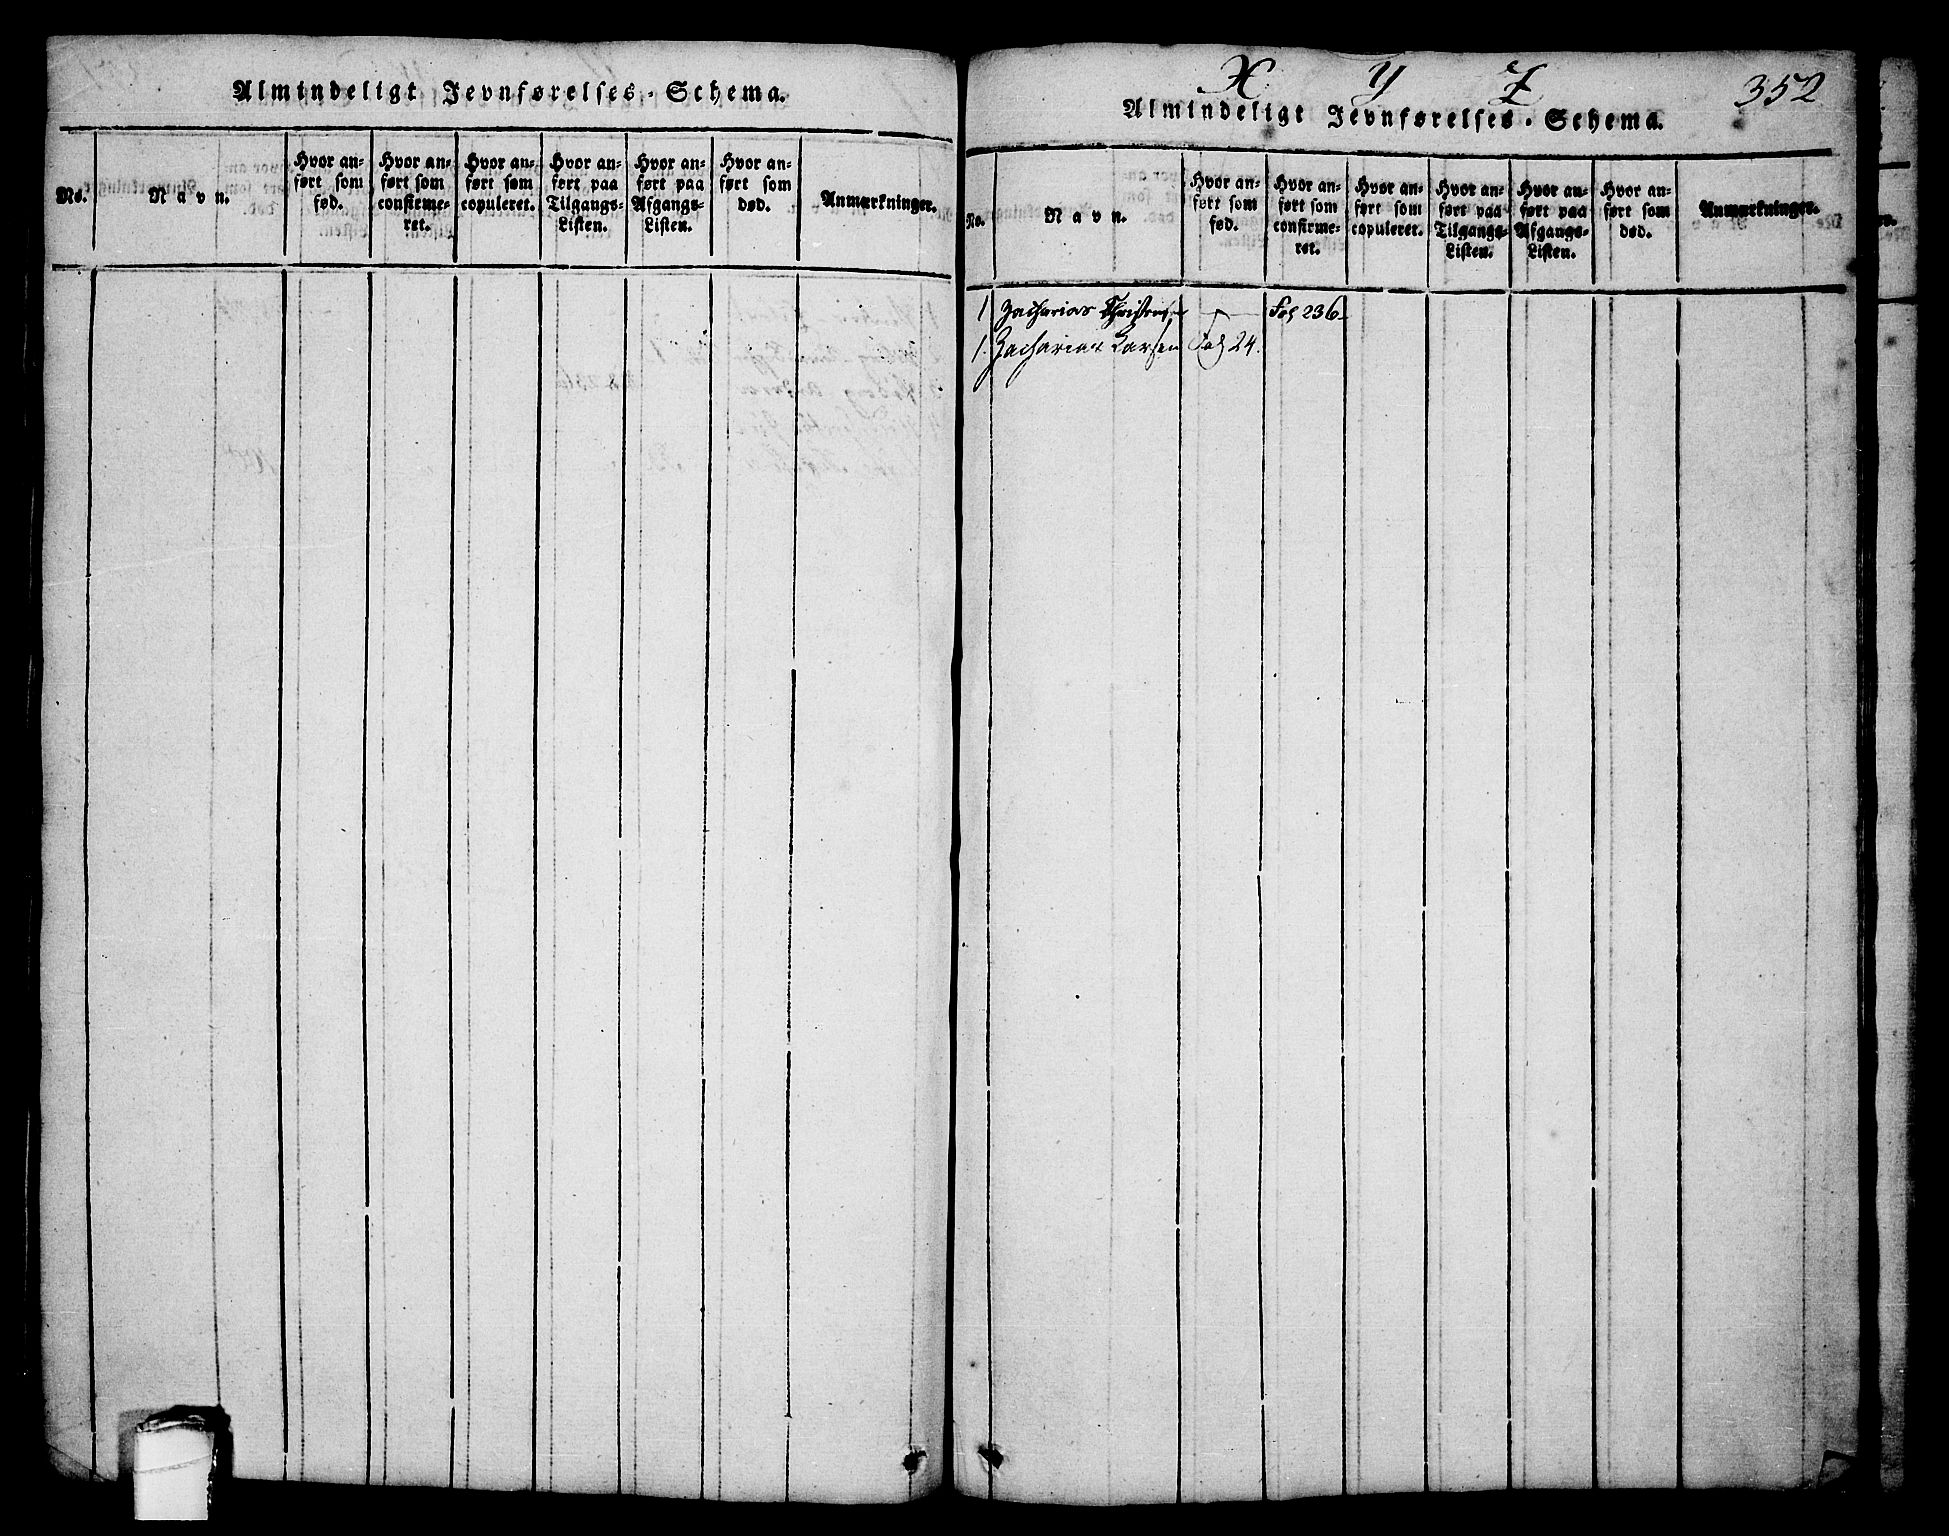 Almindeligt Jevnførelses-Schema.
No.
Navn.
Hvor an-
ført som
fød.
Hvor an-
ført som
confirme-
ret.
Hvor an-
ført som
copuleret.
Hvor an-
ført paa
Tilgangs-
Listen.
Hvor an-
ført paa
Afgangs-
Listen.
Hvor an-
ført som
død.
Anmærkninger.
X Y Z 352
Almindeligt Jevnførelses-Schema.
No.
Navn.
Hvor an-
ført som
fød.
Hvor an-
ført som
confirme-
ret.
Hvor an-
ført som
copuleret.
Hvor an-
ført paa
Tilgangs-
Listen.
Hvor an-
ført paa
Afgangs-
Listen.
Hvor an-
ført som
død.
Anmærkninger.
1 Zacharias Christensen — Fol 236
1. Zacharias Larsen Fol 24.